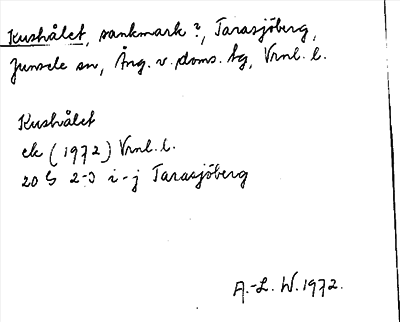 Kushålet, sankmark?, Tarasjöberg,
Junsele sn, Ång. v. doms. tg, Vrnl. l.
Kushålet
ek (1972) Vrnl. l.
20 G 2-3 i-j Tarasjöberg
A.-L. W. 1972.